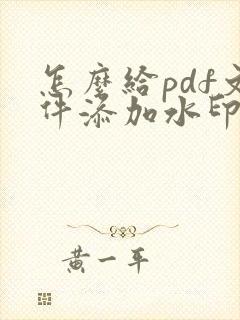 怎麼給pdf文
件添加水印
黃一平